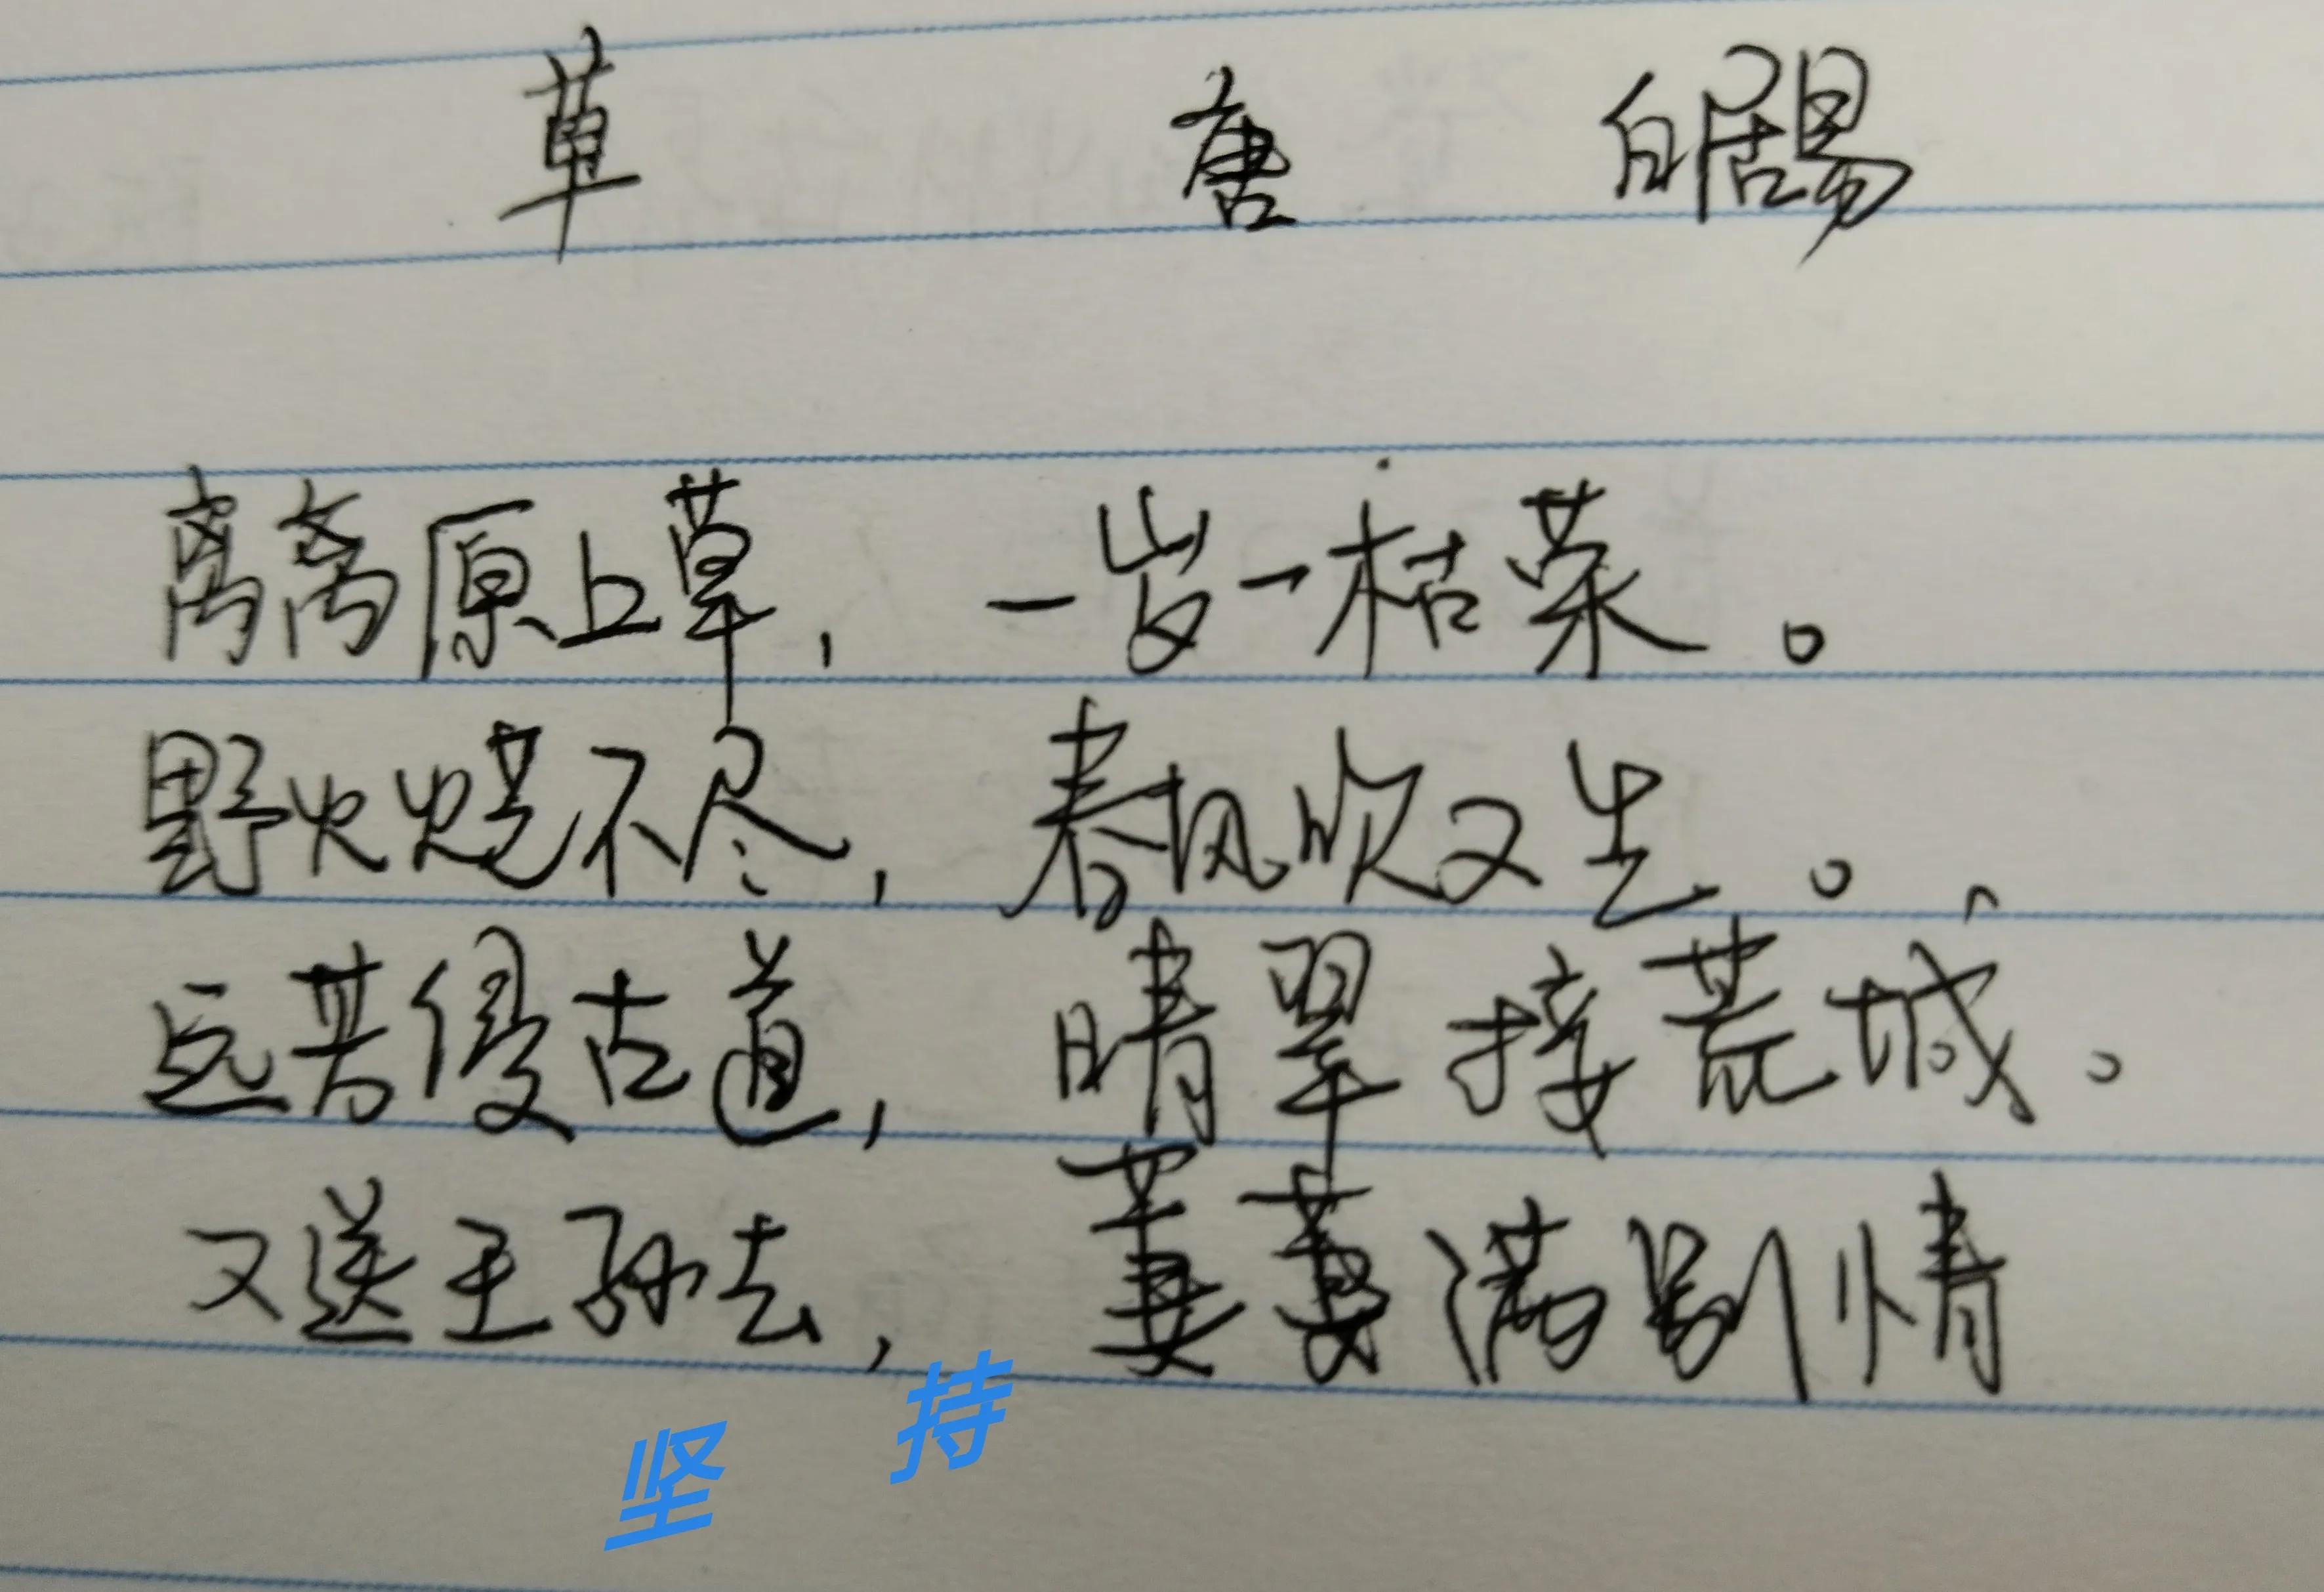 草 唐 白居易
离离原上草,一岁一枯荣。
野火烧不尽,春风吹又生。
远芳侵古道,晴翠接荒城。
又送王孙去,萋萋满别情
坚持